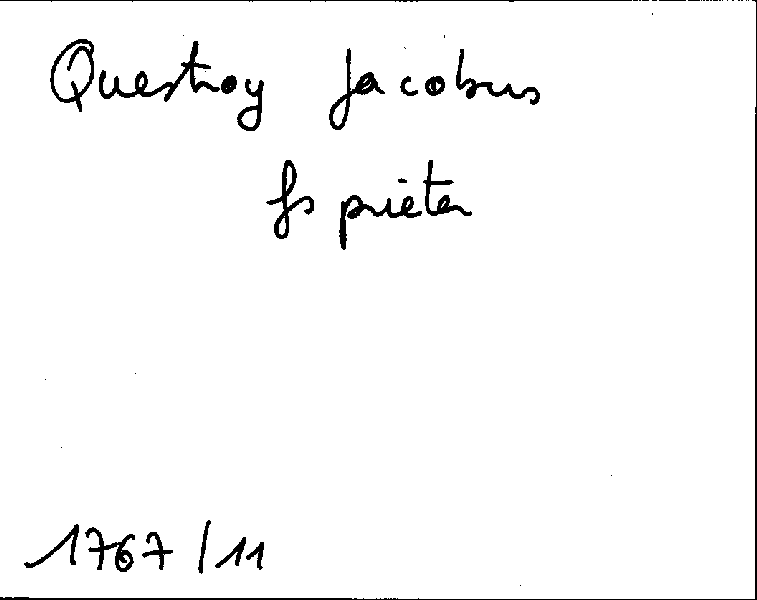 Questroy Jacobus
fs pieter
1767/11